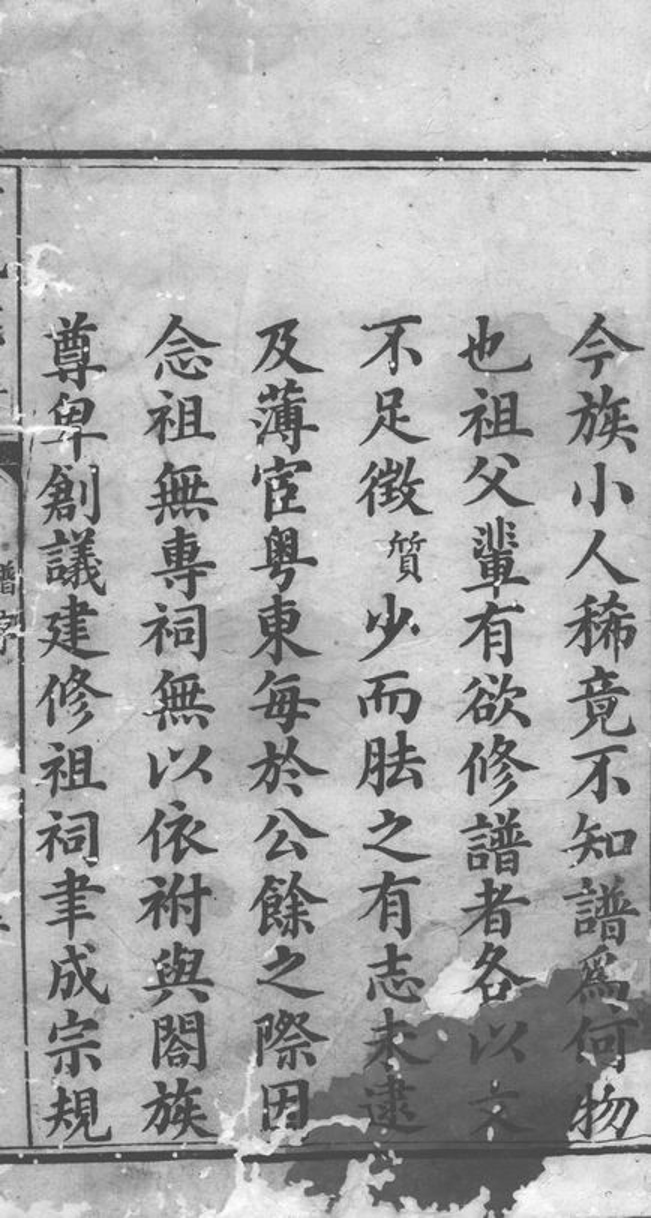 今族小人稀竟不知譜爲何物
也祖父輩有欲修譜者各以文
不足徵質少而胠之有志未逮
及薄宦粤東每於公餘之際因
念祖無專祠無以依祔與閤族
尊卑創議建修祖祠聿成宗規
譜序